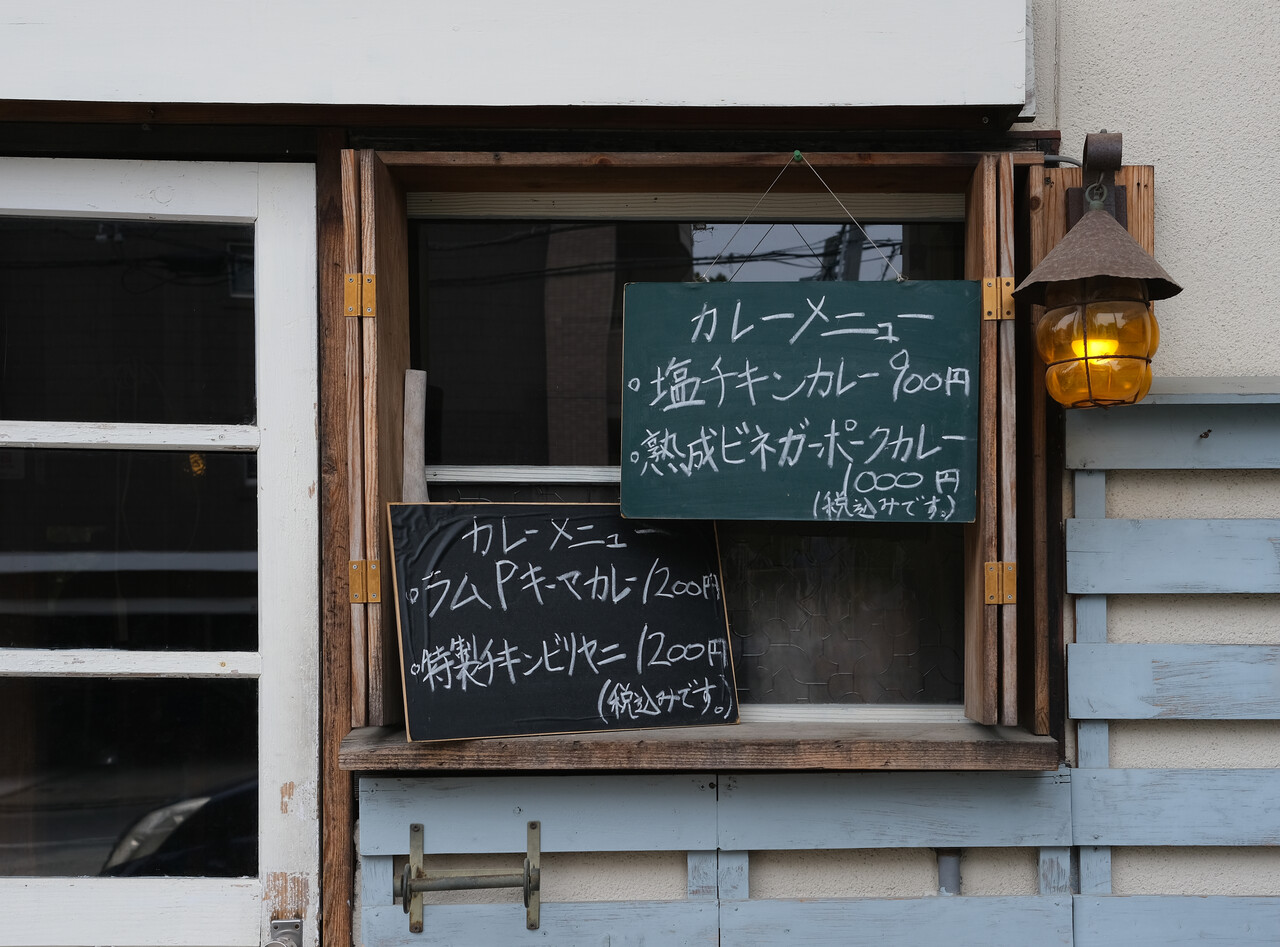 カレーメニュー
。塩チキンカレー 900円
。熟成ビネガーポークカレー
1000円
(税込みです。)
カレーメニュー
。ラムPキーマカレー 1200円
。特製チキンビリヤニ 1200円
(税込みです。)